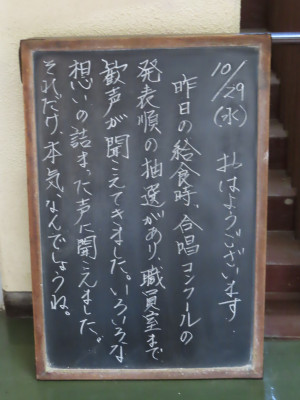 10/29(水) おはようございます.
昨日の給食時、合唱コンクールの
発表順の抽選があり、職員室まで
歓声が聞こえてきました。いろいろな
想いの詰まった声に聞こえました。
それだけ、本気なんでしょうね。